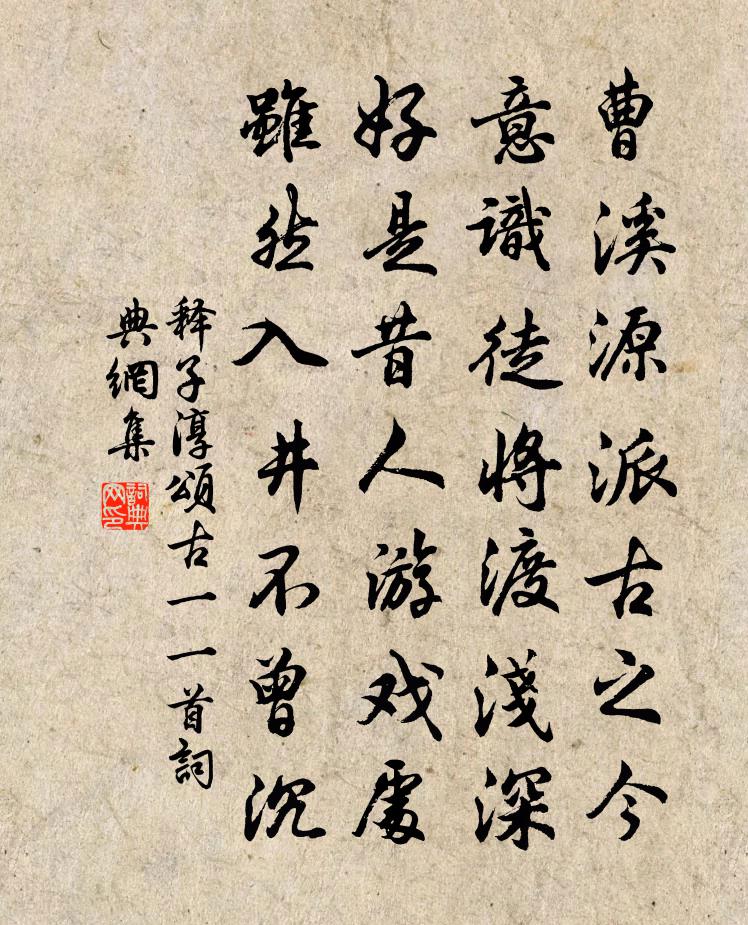 曹溪源派古之今
意識徒將渡淺深
好是昔人游戏處
雖然入井不曾沉
释子淳頌古一一首詞
典網集
詞典
网印